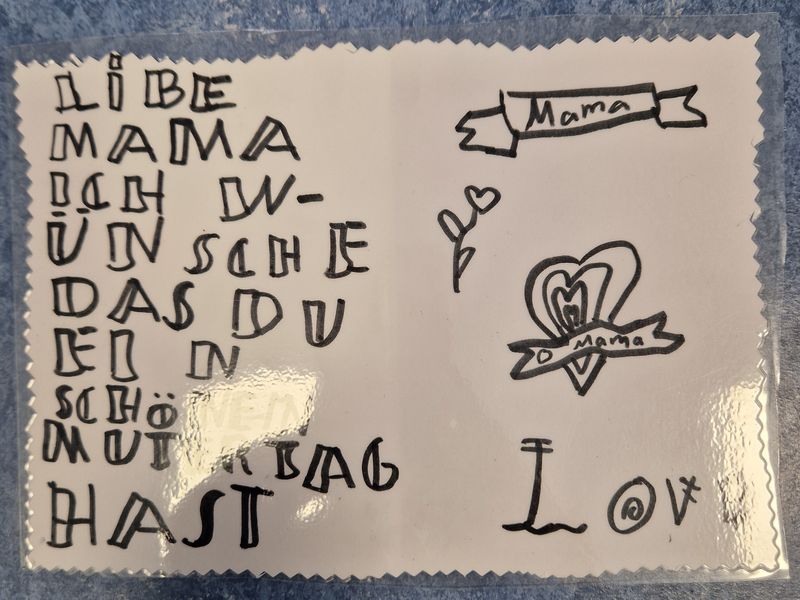 LIBE
MAMA
ICH W-
ÜNSCHE
DAS DU
EIN
SCHÖNEIN
MUTERTAG
HAST
Mama
Mama
LOV